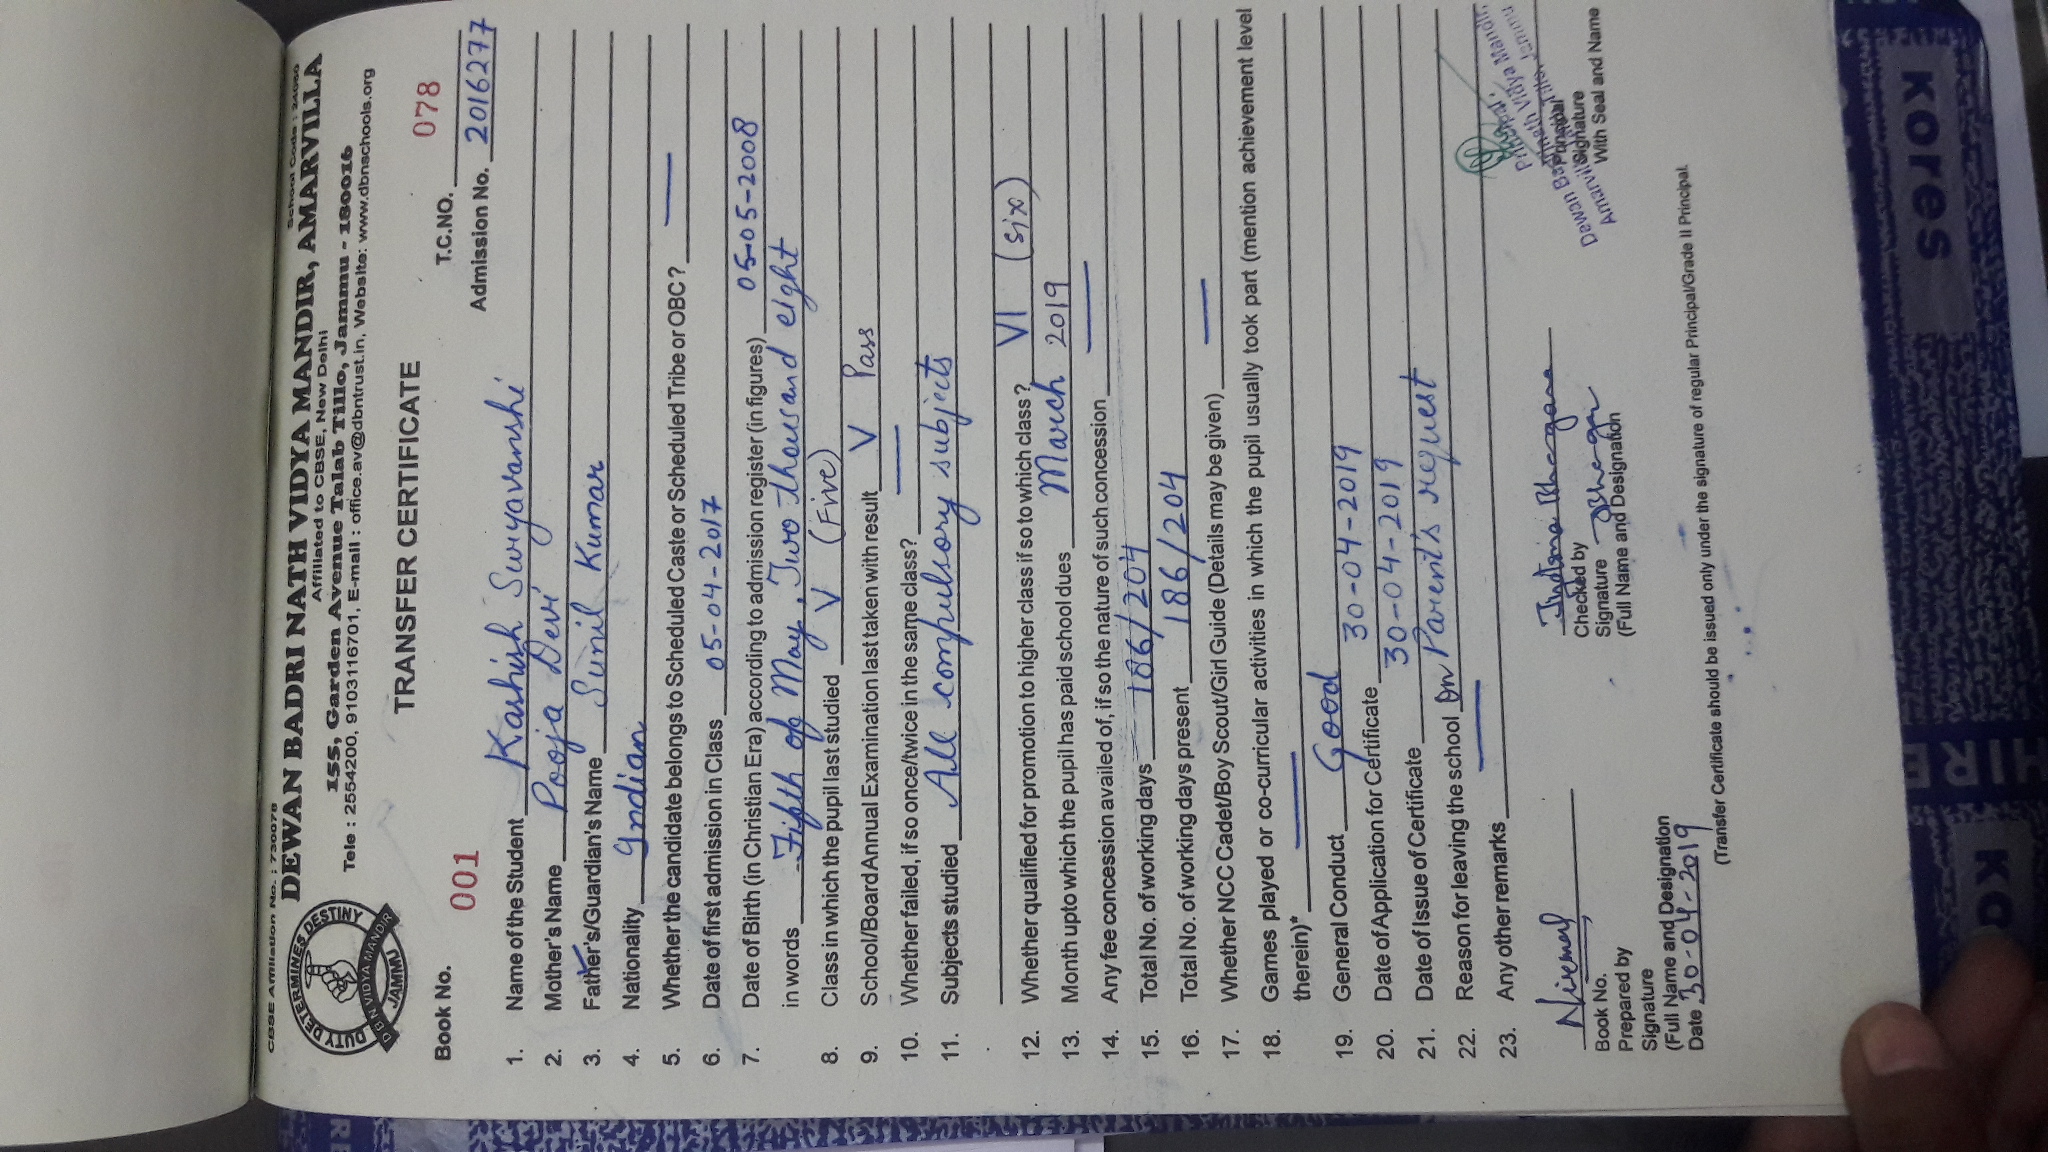 CBSE Affiliation No. : 730078 School Code : 24090
DEWAN BADRI NATH VIDYA MANDIR, AMARVILLA
Affiliated to CBSE, New Delhi
155, Garden Avenue Talab Tillo, Jammu - 180016
Tele : 2554200, 9103116701, E-mail : office.av@dbntrust.in, Website: www.dbnschools.org
DUTY DETERMINES DESTINY
D B N VIDYA MANDIR
JAMMU
TRANSFER CERTIFICATE
Book No. 001 T.C.NO. 078
Admission No. 2016277
1. Name of the Student Kashish Suryavanshi
2. Mother's Name Pooja Devi
3. Father's/Guardian's Name Sunil Kumar
4. Nationality Indian
5. Whether the candidate belongs to Scheduled Caste or Scheduled Tribe or OBC? —
6. Date of first admission in Class 05-04-2017
7. Date of Birth (in Christian Era) according to admission register (in figures) 05-05-2008
in words Fifth of May, Two thousand eight
8. Class in which the pupil last studied V (Five)
9. School/Board Annual Examination last taken with result V Pass
10. Whether failed, if so once/twice in the same class? —
11. Subjects studied All compulsory subjects
12. Whether qualified for promotion to higher class if so to which class? VI (six)
13. Month upto which the pupil has paid school dues March 2019
14. Any fee concession availed of, if so the nature of such concession —
15. Total No. of working days 186/204
16. Total No. of working days present 186/204
17. Whether NCC Cadet/Boy Scout/Girl Guide (Details may be given) —
18. Games played or co-curricular activities in which the pupil usually took part (mention achievement level
therein)* —
19. General Conduct Good
20. Date of Application for Certificate 30-04-2019
21. Date of Issue of Certificate 30-04-2019
22. Reason for leaving the school On Parent's request
23. Any other remarks —
Book No.
Prepared by
Signature
(Full Name and Designation
Date 30-04-2019
Checked by
Signature
(Full Name and Designation
Principal
Dewan Badri Nath Vidya Mandir,
Amarvilla, Talab Tillo, Jammu
Principal
Signature
With Seal and Name
(Transfer Certificate should be issued only under the signature of regular Principal/Grade II Principal.
Kores